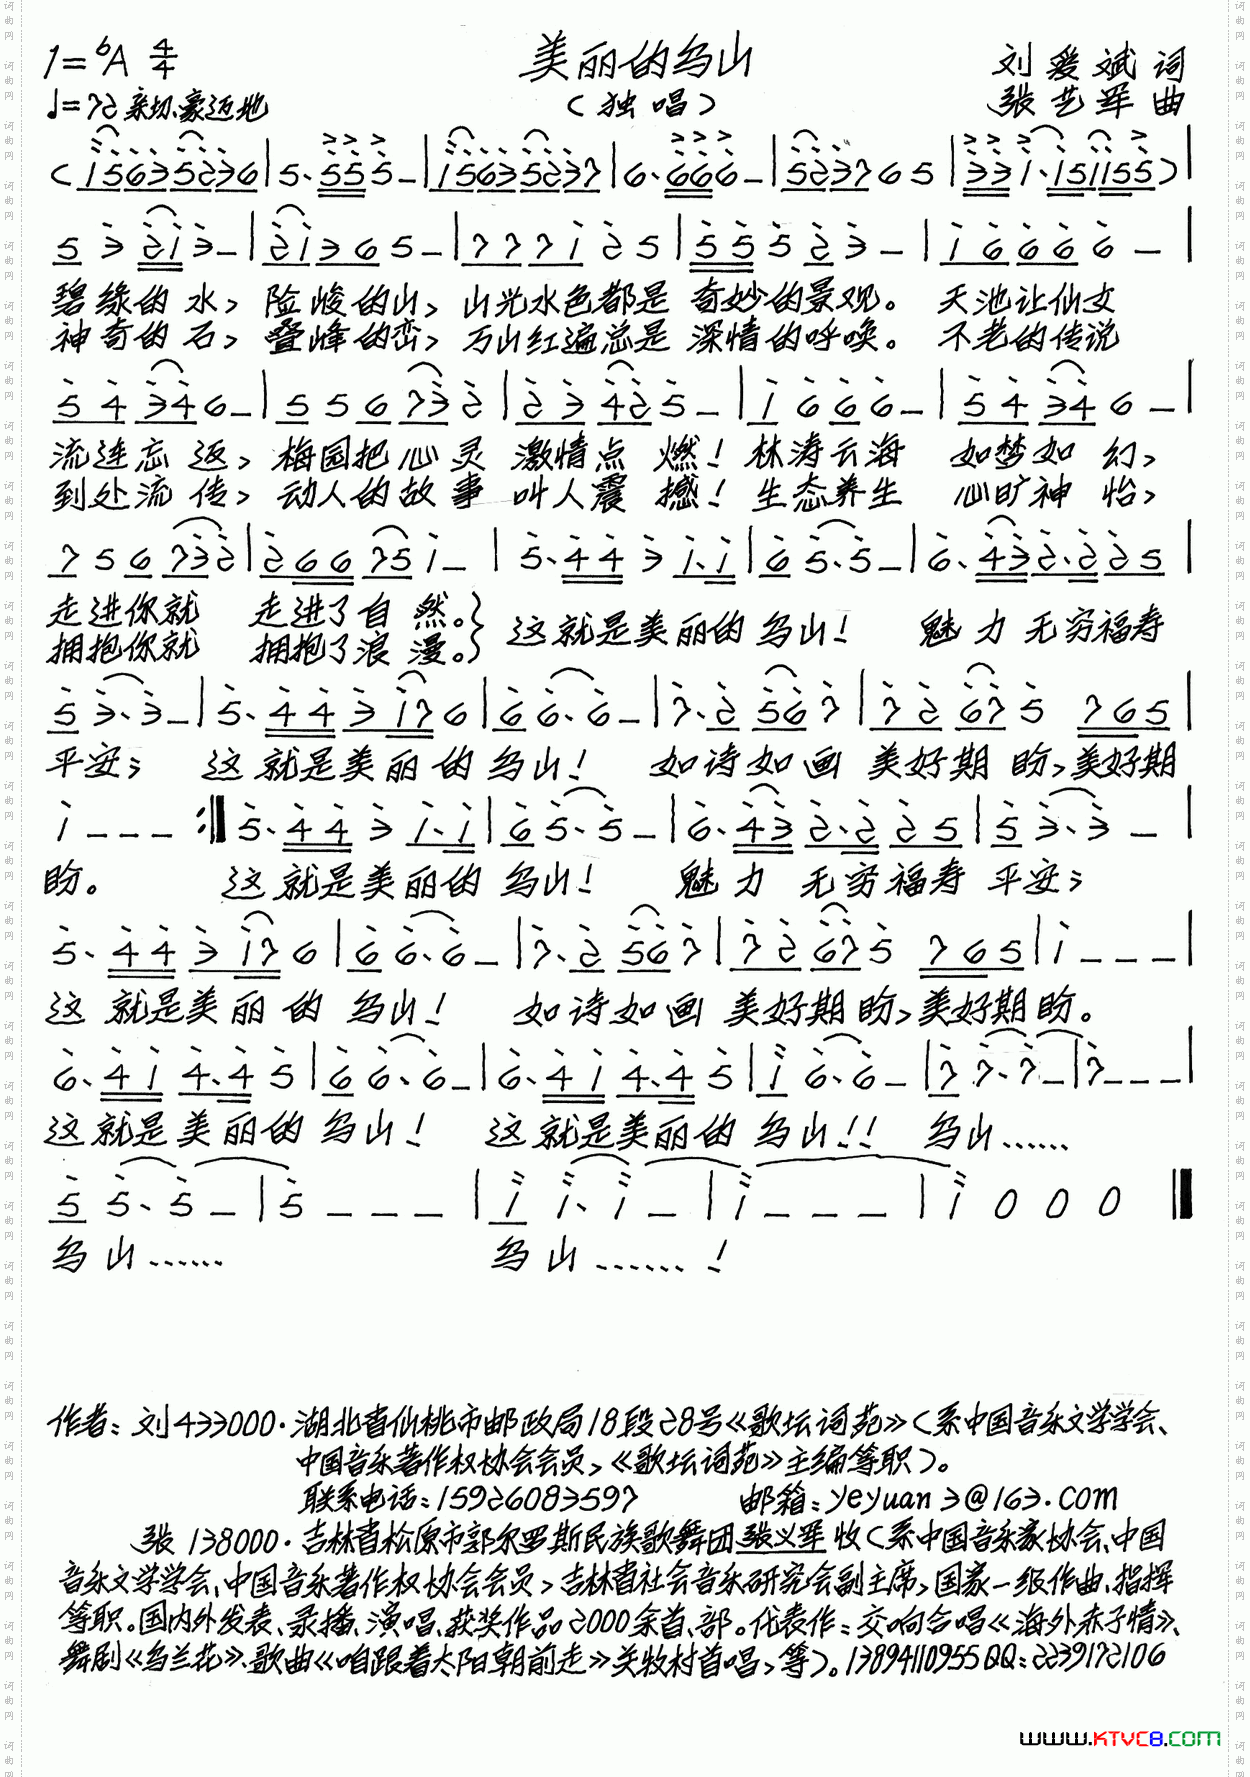 美丽的乌山
(独唱)
1=ᵇA 4/4
♩=72 亲切、豪迈地
刘爱斌 词
张艺军 曲
(1563 5236|5·555-|1563 5237|6·666-|5237 6 5|33 1·151155)|
5 3 21 3-|21 36 5-|77 71 2 5|55 5 2 3-|16 66 6-|
碧绿的水, 险峻的山, 山光水色都是 奇妙的景观。 天池让仙女
神奇的石, 叠峰的峦, 万山红遍总是 深情的呼唤。 不老的传说
54 34 6-|55 6 73 2|23 42 5-|16 6 6-|54 34 6-|
流连忘返, 梅园把心灵 激情点燃! 林涛云海 如梦如幻,
到处流传, 动人的故事 叫人震撼! 生态养生 心旷神怡,
7 5 6 732|266 75 1-|5·44 3 1·1|6 5·5-|6·43 2·2 25|
走进你就 走进了自然。} 这就是美丽的乌山! 魅力无穷福寿
拥抱你就 拥抱了浪漫。}
5 3·3-|5·44 3 17 6|6 6·6-|7·2 56 7|72 67 5 765|
平安; 这就是美丽的乌山! 如诗如画 美好期盼,美好期
1---:‖5·44 3 1·1|6 5·5-|6·43 2·2 25|5 3·3-|
盼。 这就是美丽的乌山! 魅力 无穷福寿平安;
5·44 3 17 6|6 6·6-|7·2 56 7|72 67 5 765|1---|
这就是美丽的乌山! 如诗如画 美好期盼,美好期盼。
6·41 4·4 5|6 6·6-|6·41 4·4 5|1 6·6-|7 7·7-|7---|
这就是美丽的乌山! 这就是美丽的乌山!! 乌山……
5 5·5-|5---|1 1·1-|1---|1 0 0 0‖
乌山…… 乌山……!
作者:刘433000·湖北省仙桃市邮政局18段28号《歌坛词苑》(系中国音乐文学学会、
中国音乐著作权协会会员,《歌坛词苑》主编等职)。
联系电话:15926083597 邮箱:yeyuan3@163.com
张 138000·吉林省松原市郭尔罗斯民族歌舞团张义军收(系中国音乐家协会、中国
音乐文学学会、中国音乐著作权协会会员,吉林省社会音乐研究会副主席,国家一级作曲、指挥
等职。国内外发表、录播、演唱、获奖作品2000余首、部。代表作:交响合唱《海外赤子情》、
舞剧《乌兰花》、歌曲《咱跟着太阳朝前走》关牧村首唱,等)。13894110955QQ:2239172106
www.KTVC8.com
词曲网